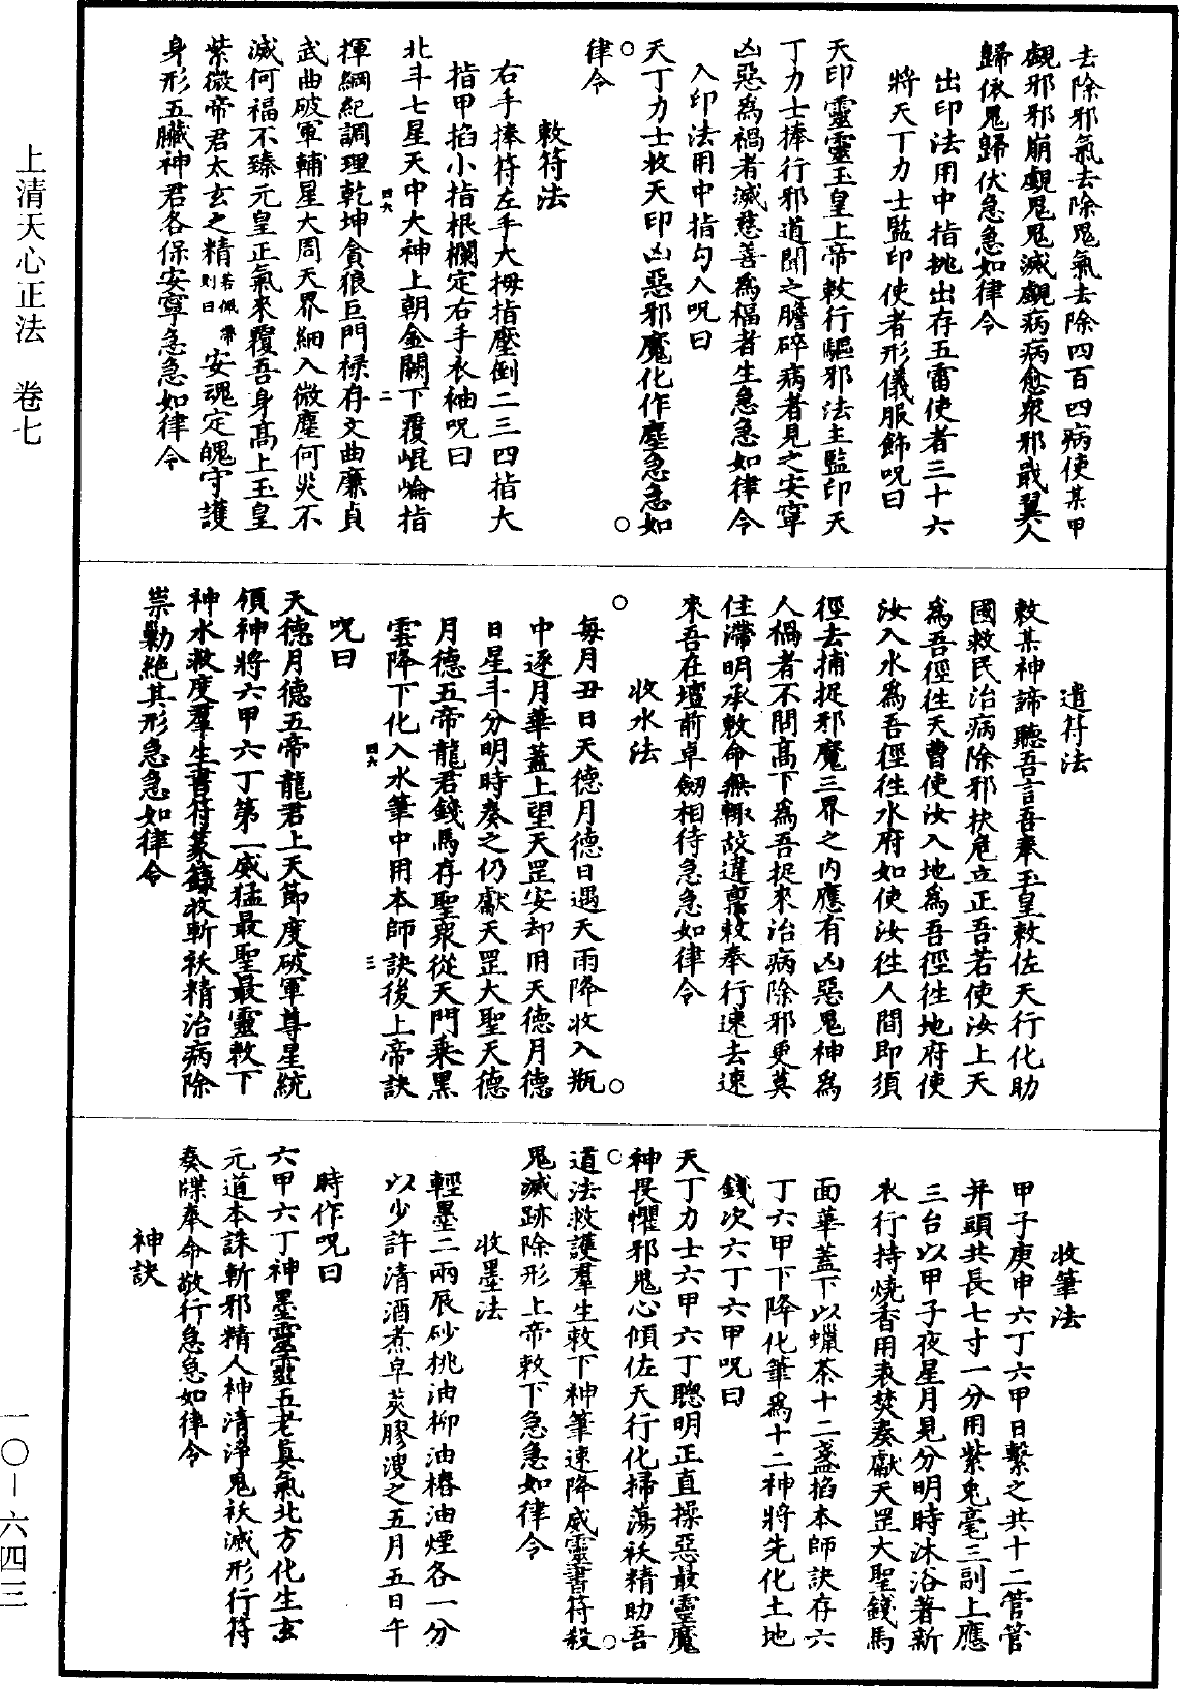 上清天心正法　卷七
一〇—六四三
去除邪氣去除鬼氣去除四百四病使某甲
覷邪邪崩覷鬼鬼滅覷病病愈衆邪戢翼人
歸依鬼歸伏急急如律令
出印法用中指挑出存五雷使者三十六
將天丁力士監印使者形儀服飾呪曰
天印靈靈玉皇上帝敕行驅邪法主監印天
丁力士捧行邪道聞之膽碎病者見之安寧
凶惡爲禍者滅慈善爲福者生急急如律令
入印法用中指勾入呪曰
天丁力士收天印凶惡邪魔化作塵急急如
律令
敕符法
右手捧符左手大拇指壓倒二三四指大
指甲掐小指根欄定右手衣袖呪曰
北斗七星天中大神上朝金闕下覆崐崘指
四六　二
揮綱紀調理乾坤貪狼巨門祿存文曲廉貞
武曲破軍輔星大周天界細入微塵何災不
滅何福不臻元皇正氣來覆吾身高上玉皇
紫微帝君太玄之精若佩帶則曰安魂定魄守護
身形五臟神君各保安寧急急如律令
遣符法
敕某神諦聽吾言吾奉玉皇敕佐天行化助
國救民治病除邪扶危立正吾若使汝上天
爲吾徑往天曹使汝入地爲吾徑往地府使
汝入水爲吾徑往水府如使汝往人間即須
徑去捕捉邪魔三界之内應有凶惡鬼神爲
人禍者不問高下爲吾捉來治病除邪更莫
住滯明承敕命無輙故違稟敕奉行速去速
來吾在壇前卓劒相待急急如律令
收水法
每月丑日天德月德日遇天雨降收入瓶
中逐月華蓋上望天罡安却用天德月德
日星斗分明時奏之仍獻天罡大聖天德
月德五帝龍君錢馬存聖衆從天門乘黑
雲降下化入水筆中用本師訣後上帝訣
四六　三
呪曰
天德月德五帝龍君上天節度破軍尊星統
領神將六甲六丁第一威猛最聖最靈敕下
神水救度羣生書符篆籙收斬祅精治病除
祟勦絶其形急急如律令
收筆法
甲子庚申六丁六甲日繫之共十二管管
并頭共長七寸一分用紫兎毫三副上應
三台以甲子夜星月見分明時沐浴著新
衣行持燒香用表焚奏獻天罡大聖錢馬
面華蓋下以蠟茶十二盞掐本師訣存六
丁六甲下降化筆爲十二神將先化土地
錢次六丁六甲呪曰
天丁力士六甲六丁聰明正直操惡最靈魔
神畏懼邪鬼心傾佐天行化掃蕩祅精助吾
道法救護羣生敕下神筆速降威靈書符殺
鬼滅跡除形上帝敕下急急如律令
收墨法
輕墨二兩辰砂桃油柳油椿油煙各一分
以少許清酒煮皁莢膠溲之五月五日午
時作呪曰
六甲六丁神墨靈靈五老眞氣北方化生玄
元道本誅斬邪精人神清淨鬼祅滅形行符
奏牒奉命敬行急急如律令
神訣